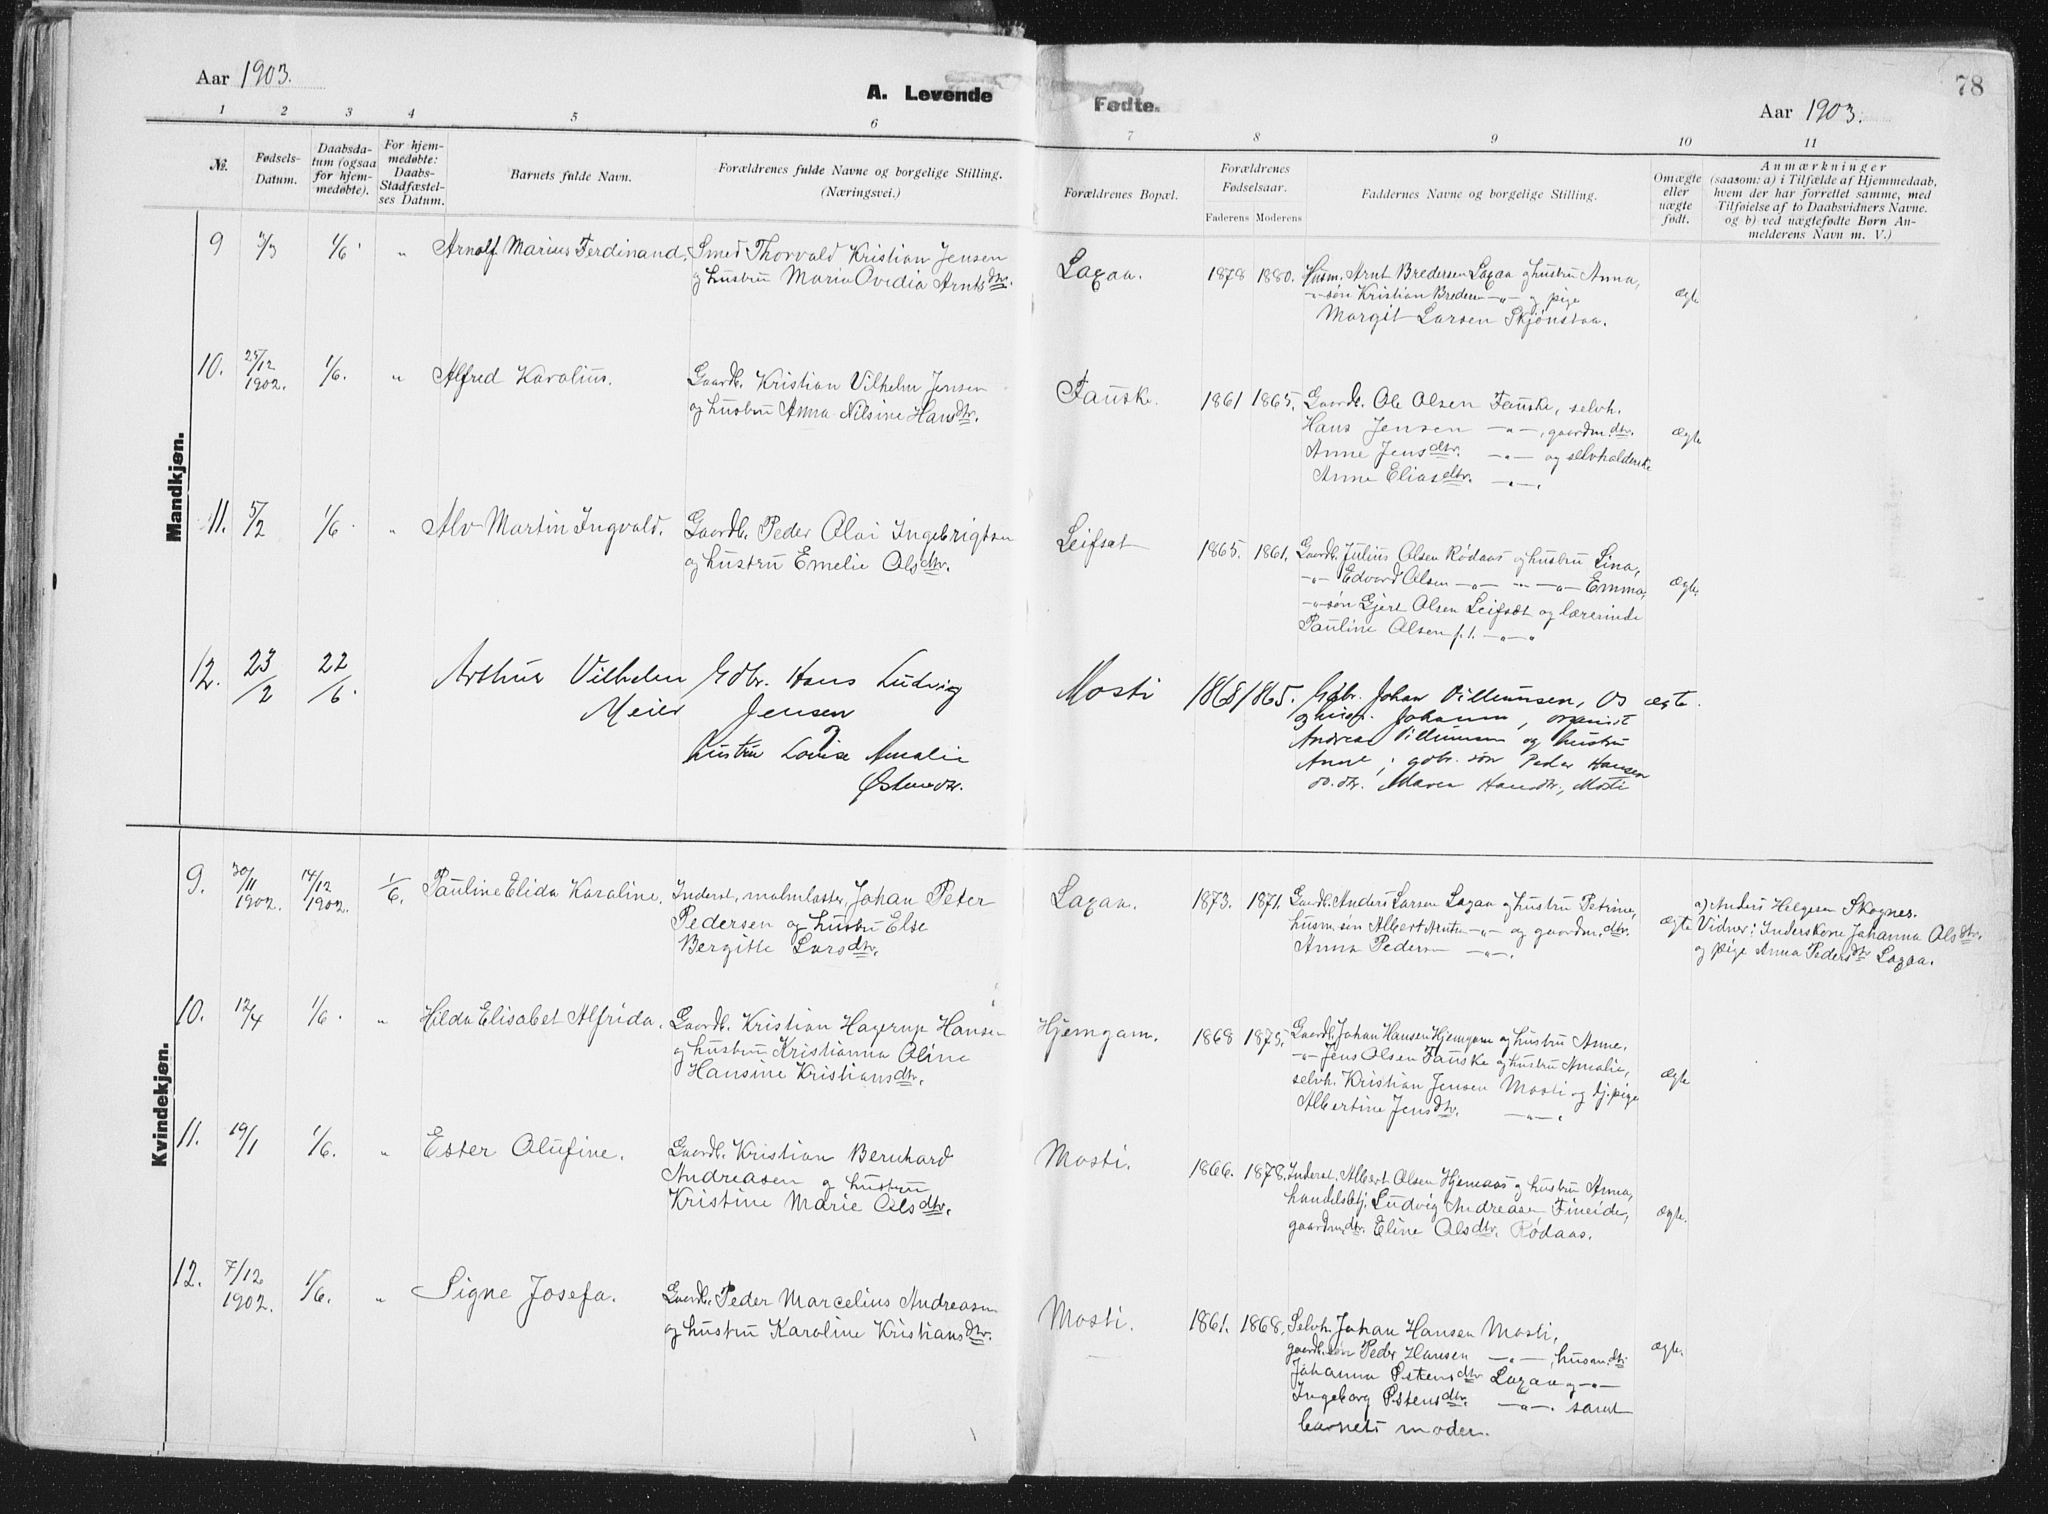 Aar 1903.
A. Levende Fødte.
Aar 1903.
78
1 2 3 4 5 6 7 8 9 10 11
№.
Fødsels-
Datum.
Daabsda-
tum (ogsaa
for hjem-
medøbte).
For hjem-
medøbte:
Daabs-
Stadfæstel-
ses Datum.
Barnets fulde Navn.
Forældrenes fulde Navne og borgelige Stilling.
(Næringsvei.)
Forældrenes Bopæl.
Forældrenes
Fødselsaar.
Faderens Moderens
Faddernes Navne og borgelige Stilling.
Omægte
eller
uægte
født.
Anmærkninger
(saasom: a) i Tilfælde af Hjemmedaab,
hvem der har forrettet samme, med
Tilføielse af to Daabsvidners Navne.
og b) ved uægtefødte Børn An-
melderens Navn m. V.)
Mandkjøn.
9 1/6. „ Arnolf Marius Ferdinand.
Smed Thorvald Kristian Jensen
og hustru Maria Ovidia Arntsdtr.
Laxaa. 1878 1880.
Husm. Arnt Bredersen Laxaa og hustru Anna,
-„- søn Kristian Bredersen -„- og pige
Margit Larsen Skjønstaa.
ægte
10. 25/12 1902. 1/6. „ Alfred Karolius.
Gaardb. Kristian Vilhelm Jensen
og hustru Anna Nilsine Hansdtr.
Fauske. 1861 1865.
Gaardb. Ole Olsen Fauske, selvh.
Hans Jensen -„-, gaardm.dtr.
Anne Jensdtr. -„- og selvholderske
Anne Eliasdtr. -„-.
ægte
11. 5/2 1/6. „ Alv Martin Ingvald.
Gaardb. Peder Olai Ingebrigtsen
og hustru Emelie Olsdtr.
Leifset 1865. 1861.
Gaardb. Julius Olsen Rødaas og hustru Lina,
-„- Edvard Olsen -„- -„- -„- Emma,
-„- søn Gjert Olsen Leifset og lærerinde
Pauline Olsen p.t. -„-
ægte.
12. 23/2 22/6. Arthur Vilhelm
Meier
Gdbr. Hans Ludvig
Jensen
og
hustru Lovise Amalie
Østensdtr.
Mosti 1868 1865.
Gdbr. Johan Villumsen, Os
og hustr. Johanna, organist
Andreas Villumsen og hustru
Anne; gdbr. søn Peder Hansen
do. dtr. Maren Hansdtr., Mosti
ægte.
Kvindekjøn.
9. 30/11 1902. 14/12 1902. 1/6. Pauline Elida Karoline.
Inderst, malmlaster, Johan Peter
Pedersen og hustru Else
Bergitte Larsdtr.
Laxaa. 1873. 1871.
Gaardb. Anders Larsen Laxaa og hustru Petrine,
husm. søn Albert Arntsen -„- og gaardm.dtr.
Anna Pedersen -„-.
ægte
a) Anders Helgesen Skognes.
Vidner: Inderskone Johanna Olsdtr.
og pige Anna Pedersdtr Laxaa.
10. 12/4 1/6. „ Hilda Elisabet Alfrida.
Gaardb. Kristian Hagerup Hansen
og hustru Kristianna Oline
Hansine Kristiansdtr.
Hjemgam. 1868 1875.
Gaardb. Johan Hansen Hjemgam og hustru Anne,
-„- Jens Olsen Fauske og hustru Amalie,
selvh. Kristian Jensen Mosti og tj. pige
Albertine Jensdtr. -„-.
ægte
11. 19/1 1/6. „ Ester Olufine.
Gaardb. Kristian Bernhard
Andreasen og hustru
Kristine Marie Olsdtr.
Mosti. 1866. 1878.
Inderst. Albert Olsen Hjemaas og hustru Anna,
handelsbtj. Ludvig Andreasen Fineide,
gaardm.dtr. Eline Olsdtr. Rødaas.
ægte.
12. 7/12 1902. 1/6. „ Signe Josefa.
Gaardb. Peder Marcelius Andreasen
og hustru Karoline Kristiansdtr.
Mosti. 1861. 1868.
Selvh. Johan Hansen Mosti,
gaardb. søn Peder Hansen -„-, husm.dtr
Johanna Østensdtr Laxaa og -„-
Ingeborg Østensdtr. -„-. samt
barnets moder.
ægte.